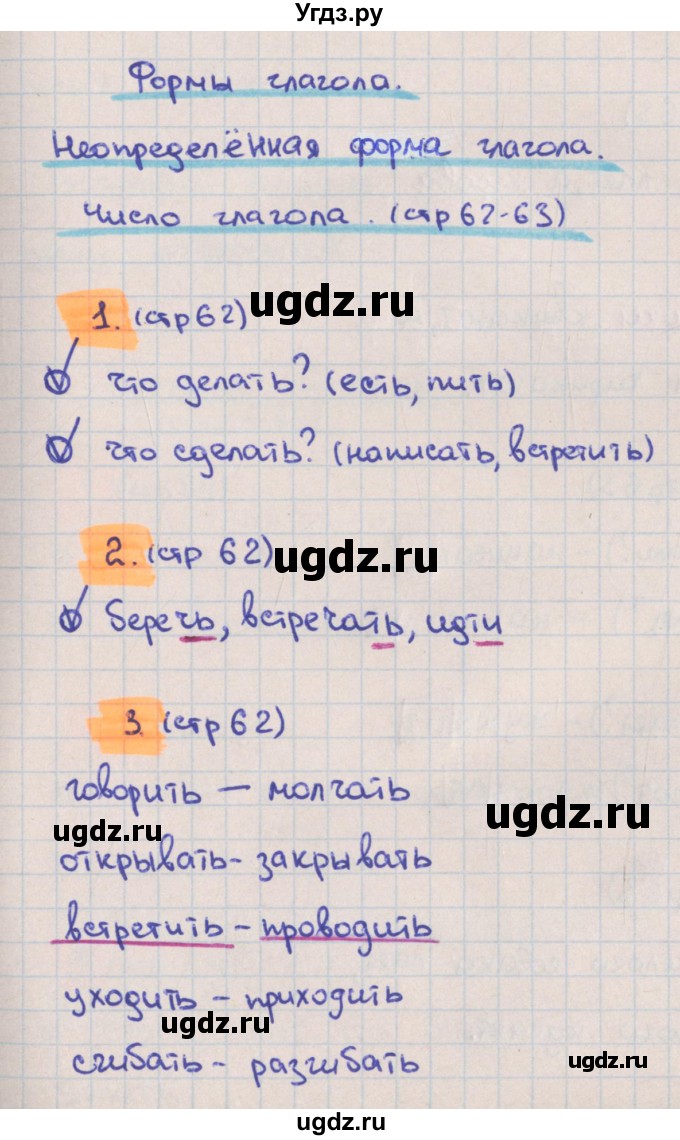 Угдз.ру
Формы глагола.
Неопределённая форма глагола.
Число глагола. (стр 62-63)
ugdz.ru
1. (стр 62)
что делать? (есть, пить)
что сделать? (написать, встретить)
2. (стр 62)
ugdz.ru
беречь, встречать, идти
3 (стр 62)
говорить – молчать
ugdz.ru
ugdz.ru
открывать - закрывать
встретить - проводить
уходить - приходить
ugdz.ru
сгибать - разгибать
ugdz.ru
ugdz.ru